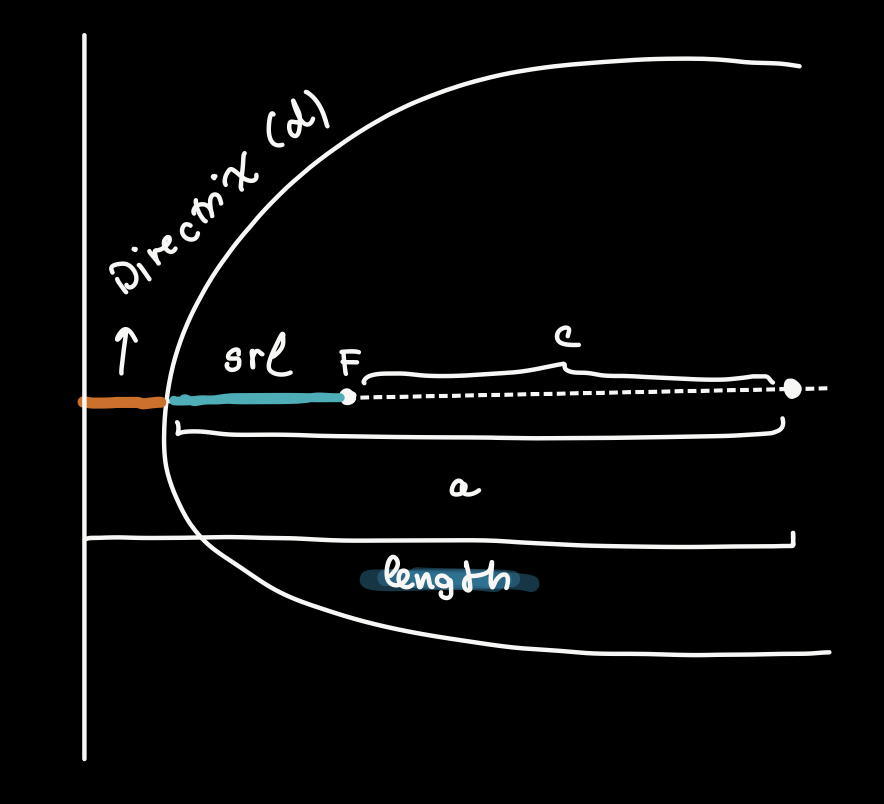 Directrix (d)
srl
F
c
a
length